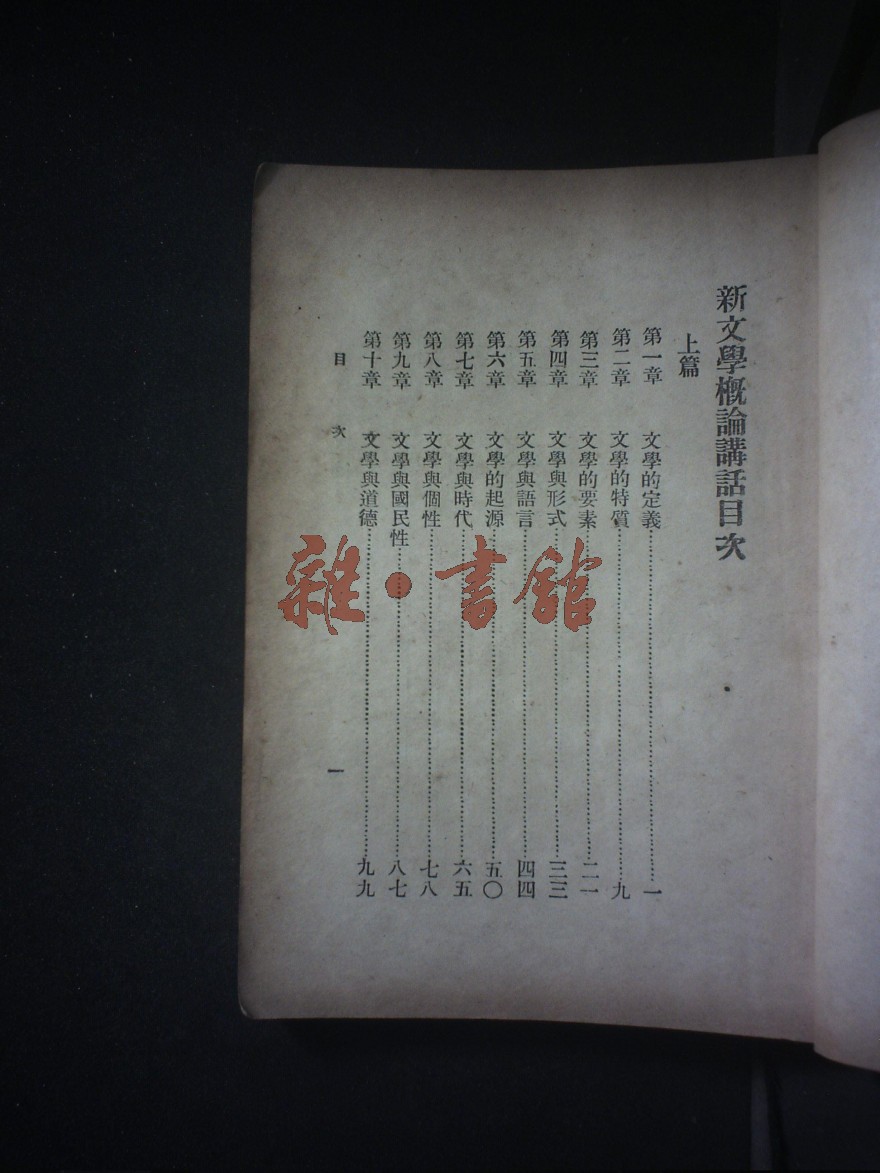 新文學概論講話目次
上篇
第一章 文學的定義……一
第二章 文學的特質……九
第三章 文學的要素……二一
第四章 文學與形式……三三
第五章 文學與語言……四四
第六章 文學的起源……五〇
第七章 文學與時代……六五
第八章 文學與個性……七八
第九章 文學與國民性……八七
第十章 文學與道德……九九
目次 一
雜·書館